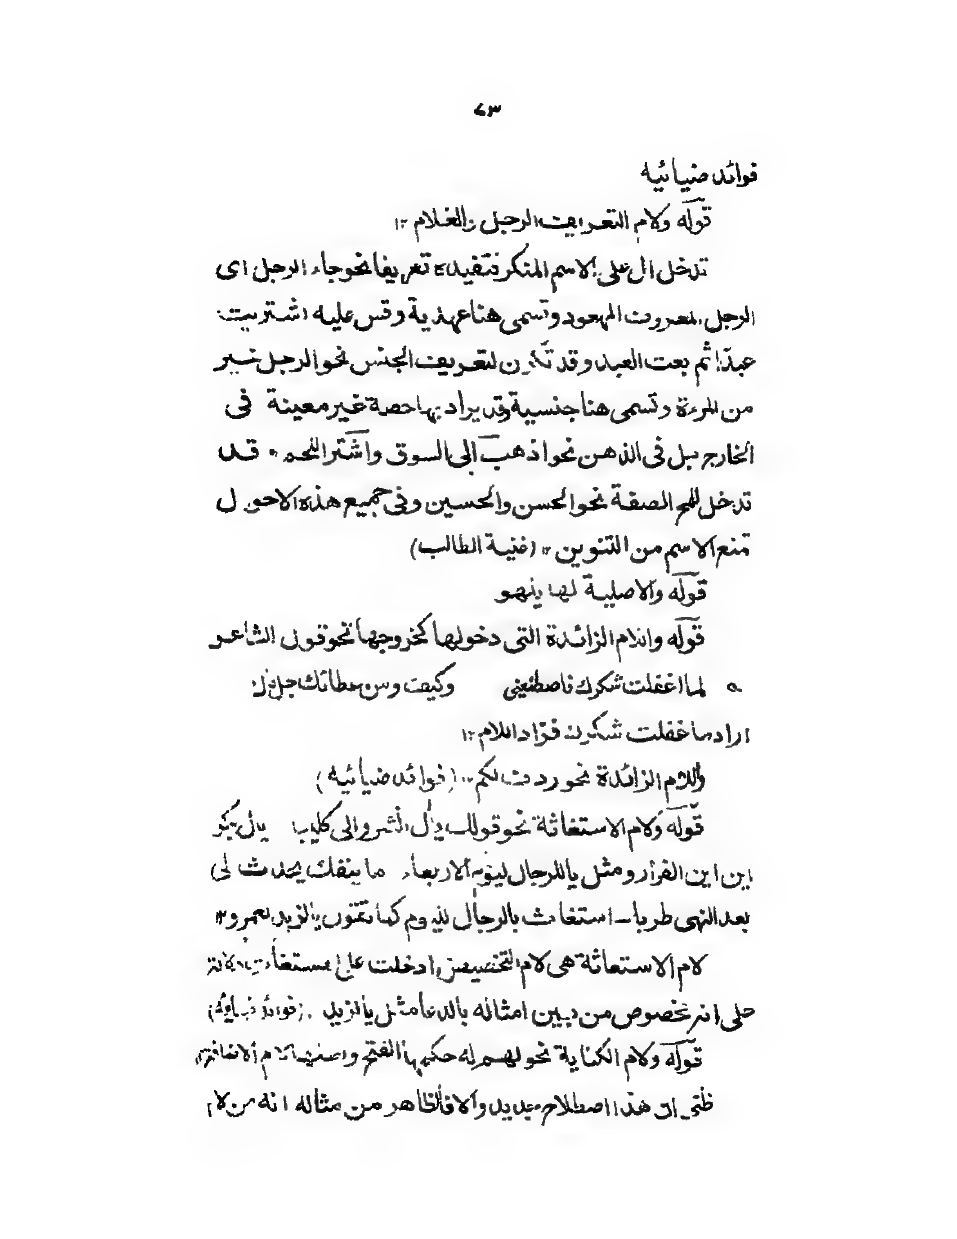 ٧٣
فوائد ضيائيه
قوله ولام التعريف الرجل والغلام ١٢
تدخل ال على الاسم المنكر فتفيده تعريفا نحو جاء الرجل اى
الرجل المعروف المهعود وتسمى هنا عهدية وقس عليه اشتريت
عبدًا ثم بعت العبد وقد تكون لتعريف الجنس نحو الرجل خير
من المرءة وتسمى هنا جنسية وقد يراد بها حصة غير معينة فى
الخارج بل فى الذهن نحو اذهب الى السوق واشتر اللحم قد
تدخل للمح الصفة نحو الحسن والحسين وفى جميع هذه الاحول
تمنع الاسم من التنوين ١٢ (غنية الطالب)
قوله والاصلية لها ينهو
قوله واللام الزائدة التى دخولها كخروجها نحو قول الشاعر
لما اغفلت شكرك فاصطنعنى وكيف ومن عطائك جل
اراد ما غفلت شكرك فزاد اللام ١٢
واللام الزائدة نحو ردف لكم ١٢ (فوائد ضيائيه)
قوله ولام الاستغاثة نحو قولك يال الشرو الى كليبا يال بكر
اين اين الفرار ومثل ياللرجال ليوم الاربعاء ما ينفك يحدث لى
بعد النهى طربا استغاث بالرجال لليوم كما تقول يالزيد لعمرو ١٢
لام الاستغاثة هى لام التخصيص ادخلت على المستغاث
على انه مخصوص من بين امثاله بالدعا مثل يالزيد (فوائد ضيائيه)
قوله ولام الكناية نحو لهم له حكمها الفتح لام الاضافة
ظنى ان هذا اصطلاح جديد والا فالظاهر من مثاله انه من لام